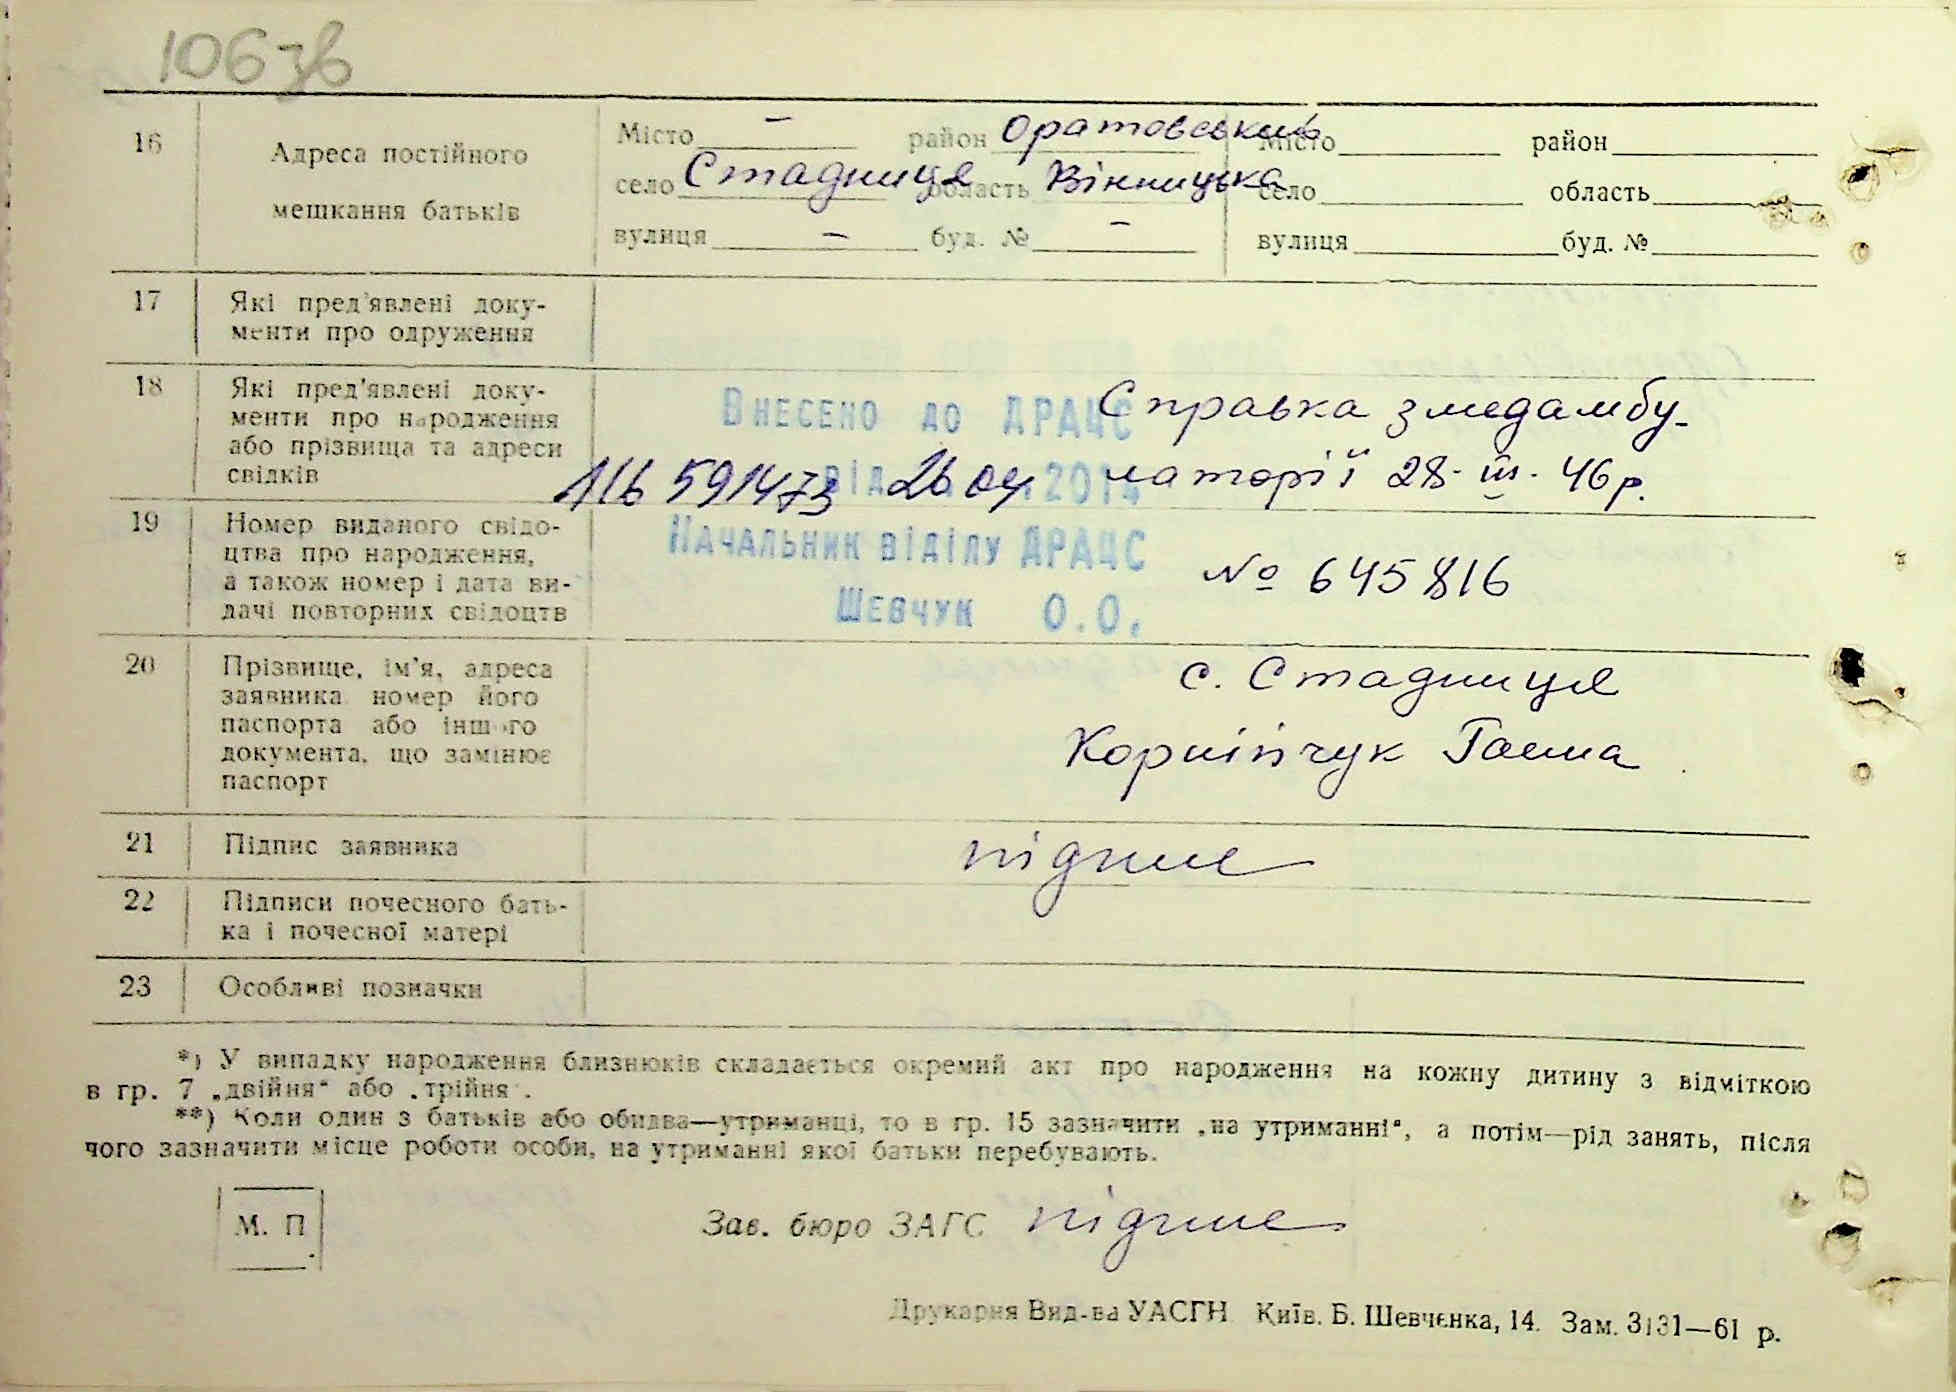 106 зв
16 Адреса постійного мешкання батьків
Місто – район Оратовський
село Стадниця область Вінницька
вулиця – буд. № –
Місто район
село область
вулиця буд. №
17 Які пред'явлені доку-
менти про одруження
18 Які пред'явлені доку-
менти про народження
або прізвища та адреси
свідків
Справка з медамбу-
латорії 28-III-46 р.
Внесено до ДРАЦС
116 59147 від 26 04 2014
Начальник відділу ДРАЦС
Шевчук О.О.
19 Номер виданого свідо-
цтва про народження,
а також номер і дата ви-
дачі повторних свідоцтв
№ 645816
20 Прізвище, ім'я, адреса
заявника номер його
паспорта або іншого
документа, що замінює
паспорт
с. Стадниця
Корнійчук Ганна
21 Підпис заявника
підпис
22 Підписи почесного бать-
ка і почесної матері
23 Особливі позначки
*) У випадку народження близнюків складається окремий акт про народження на кожну дитину з відміткою
в гр. 7 „двійня“ або „трійня“.
**) Коли один з батьків або обидва—утриманці, то в гр. 15 зазначити „на утриманні“, а потім—рід занять, після
чого зазначити місце роботи особи, на утриманні якої батьки перебувають.
М. П.
Зав. бюро ЗАГС підпис
Друкарня Вид-ва УАСГН Київ. Б. Шевченка, 14. Зам. 3131—61 р.